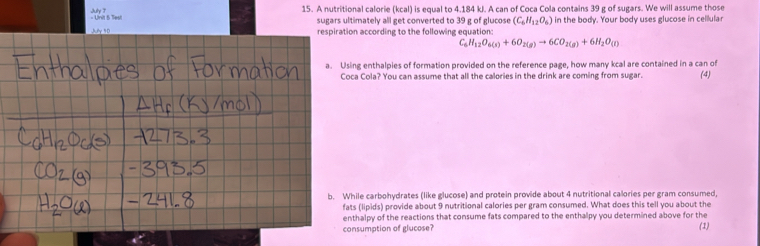 July 7
- Unit 8 Test
July 10
Enthalpies of Formation
ΔHf (KJ/mol)
C6H12O6(s) -1273.3
CO2(g) -393.5
H2O(l) -241.8
15. A nutritional calorie (kcal) is equal to 4.184 kJ. A can of Coca Cola contains 39 g of sugars. We will assume those
sugars ultimately all get converted to 39 g of glucose (C₆H₁₂O₆) in the body. Your body uses glucose in cellular
respiration according to the following equation:
C₆H₁₂O₆₍ₛ₎ + 6O₂₍g₎ → 6CO₂₍g₎ + 6H₂O₍l₎
a. Using enthalpies of formation provided on the reference page, how many kcal are contained in a can of
Coca Cola? You can assume that all the calories in the drink are coming from sugar. (4)
b. While carbohydrates (like glucose) and protein provide about 4 nutritional calories per gram consumed,
fats (lipids) provide about 9 nutritional calories per gram consumed. What does this tell you about the
enthalpy of the reactions that consume fats compared to the enthalpy you determined above for the
consumption of glucose? (1)